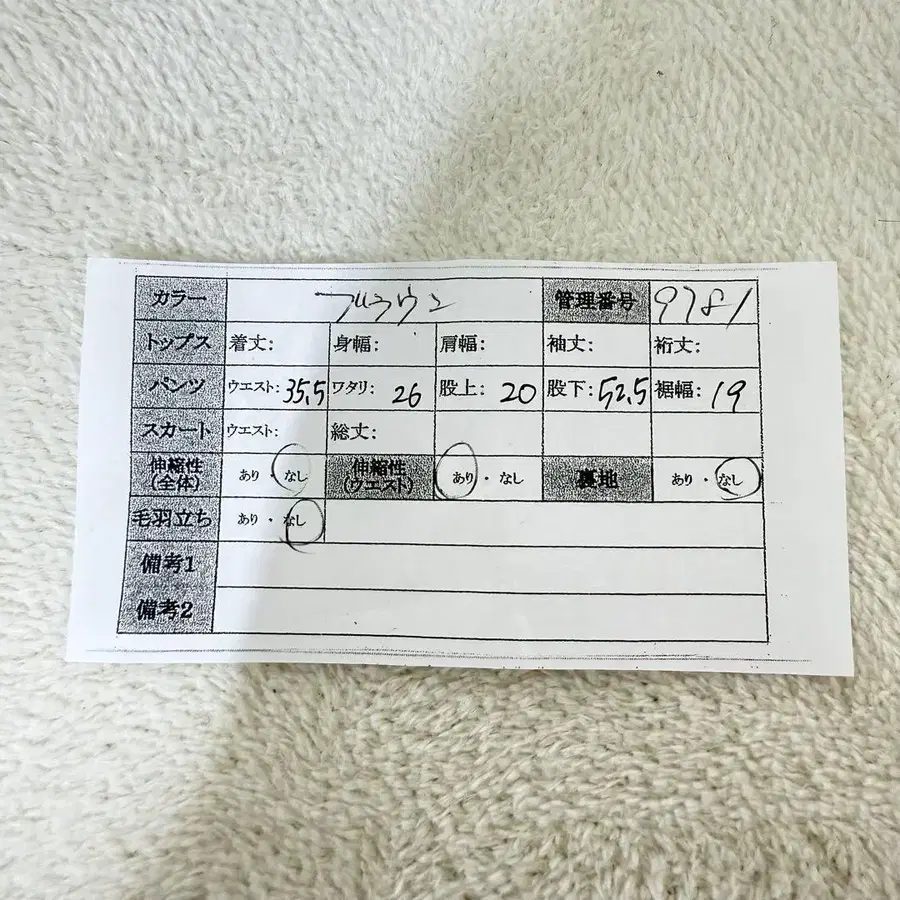 カラー ブラウン 管理番号 9781
トップス 着丈: 身幅: 肩幅: 袖丈: 裄丈:
パンツ ウエスト: 35.5 ワタリ: 26 股上: 20 股下: 52.5 裾幅: 19
スカート ウエスト: 総丈:
伸縮性(全体) あり・なし 伸縮性(ウエスト) あり・なし 裏地 あり・なし
毛羽立ち あり・なし
備考1
備考2